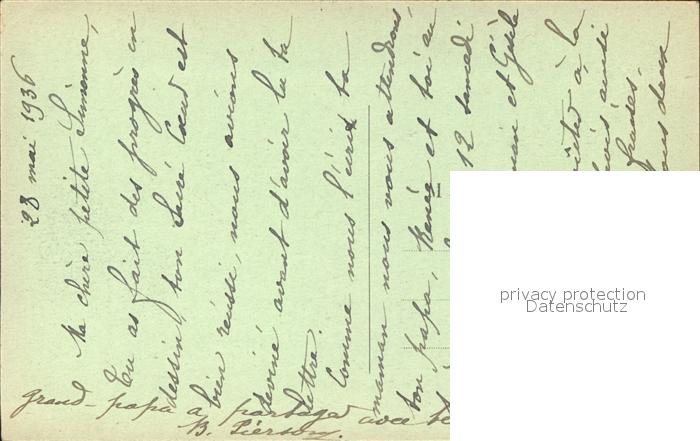 28 mai 1936
Ma chère petite Simonne,
Tu as fait des progrès en
dessin, ton Sacré Coeur est
bien réussi, nous avions
deviné avant d'avoir lu ta
lettre.
Comme nous l'écrit ta
maman nous vous attendons
ton papa, Renée et toi au
12 samedi
et Gisèle
à la
aussi
fraises.
deux
grand-papa a partagé avec
B. Pierson.
privacy protection
Datenschutz